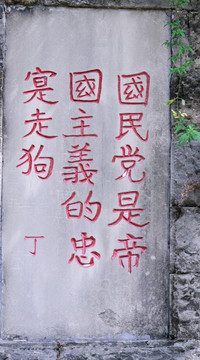 國民党是帝
國主義的忠
寔走狗
丁